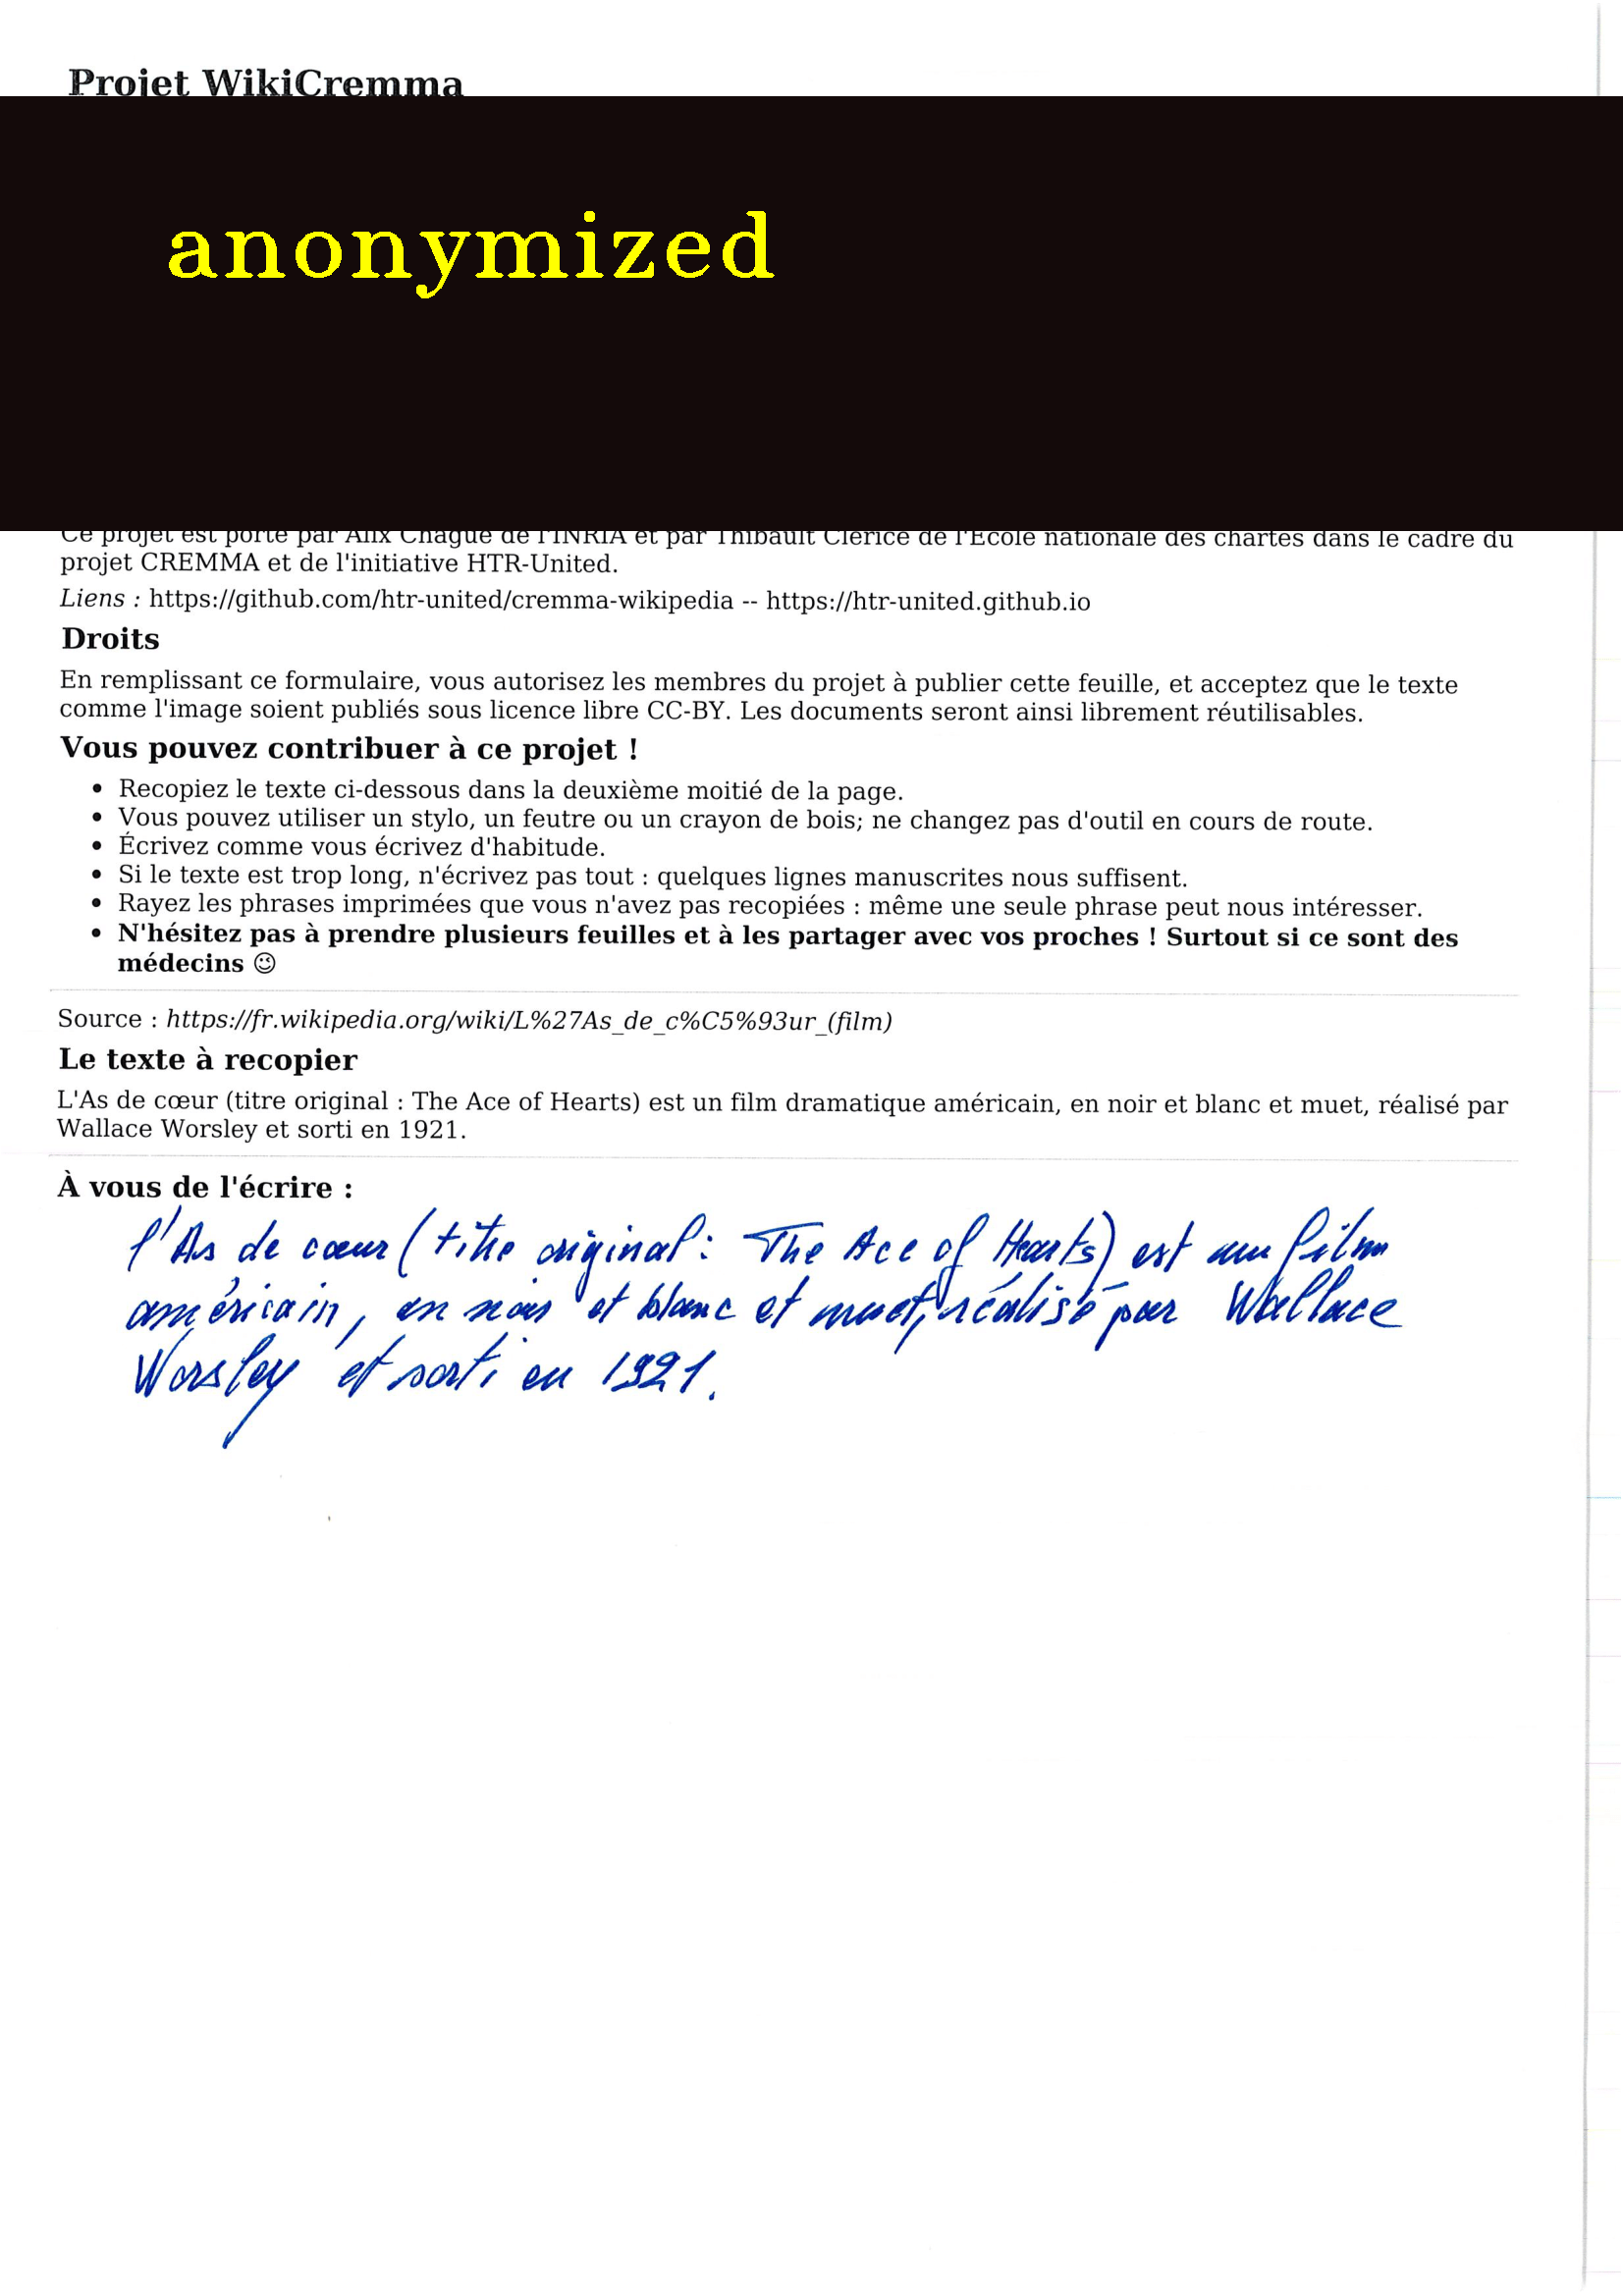 Projet WikiCremma
anonymized
Ce projet est porté par Alix Chagué de l'INRIA et par Thibault Clérice de l'École nationale des chartes dans le cadre du
projet CREMMA et de l'initiative HTR-United.
Liens : https://github.com/htr-united/cremma-wikipedia -- https://htr-united.github.io
Droits
En remplissant ce formulaire, vous autorisez les membres du projet à publier cette feuille, et acceptez que le texte
comme l'image soient publiés sous licence libre CC-BY. Les documents seront ainsi librement réutilisables.
Vous pouvez contribuer à ce projet !
• Recopiez le texte ci-dessous dans la deuxième moitié de la page.
• Vous pouvez utiliser un stylo, un feutre ou un crayon de bois; ne changez pas d'outil en cours de route.
• Écrivez comme vous écrivez d'habitude.
• Si le texte est trop long, n'écrivez pas tout : quelques lignes manuscrites nous suffisent.
• Rayez les phrases imprimées que vous n'avez pas recopiées : même une seule phrase peut nous intéresser.
• N'hésitez pas à prendre plusieurs feuilles et à les partager avec vos proches ! Surtout si ce sont des
médecins 😉
Source : https://fr.wikipedia.org/wiki/L%27As_de_c%C5%93ur_(film)
Le texte à recopier
L'As de cœur (titre original : The Ace of Hearts) est un film dramatique américain, en noir et blanc et muet, réalisé par
Wallace Worsley et sorti en 1921.
À vous de l'écrire :
l'As de cœur (titre original : The Ace of Hearts) est un film
américain, en noir et blanc et muet, réalisé par Wallace
Worsley et sorti en 1921.